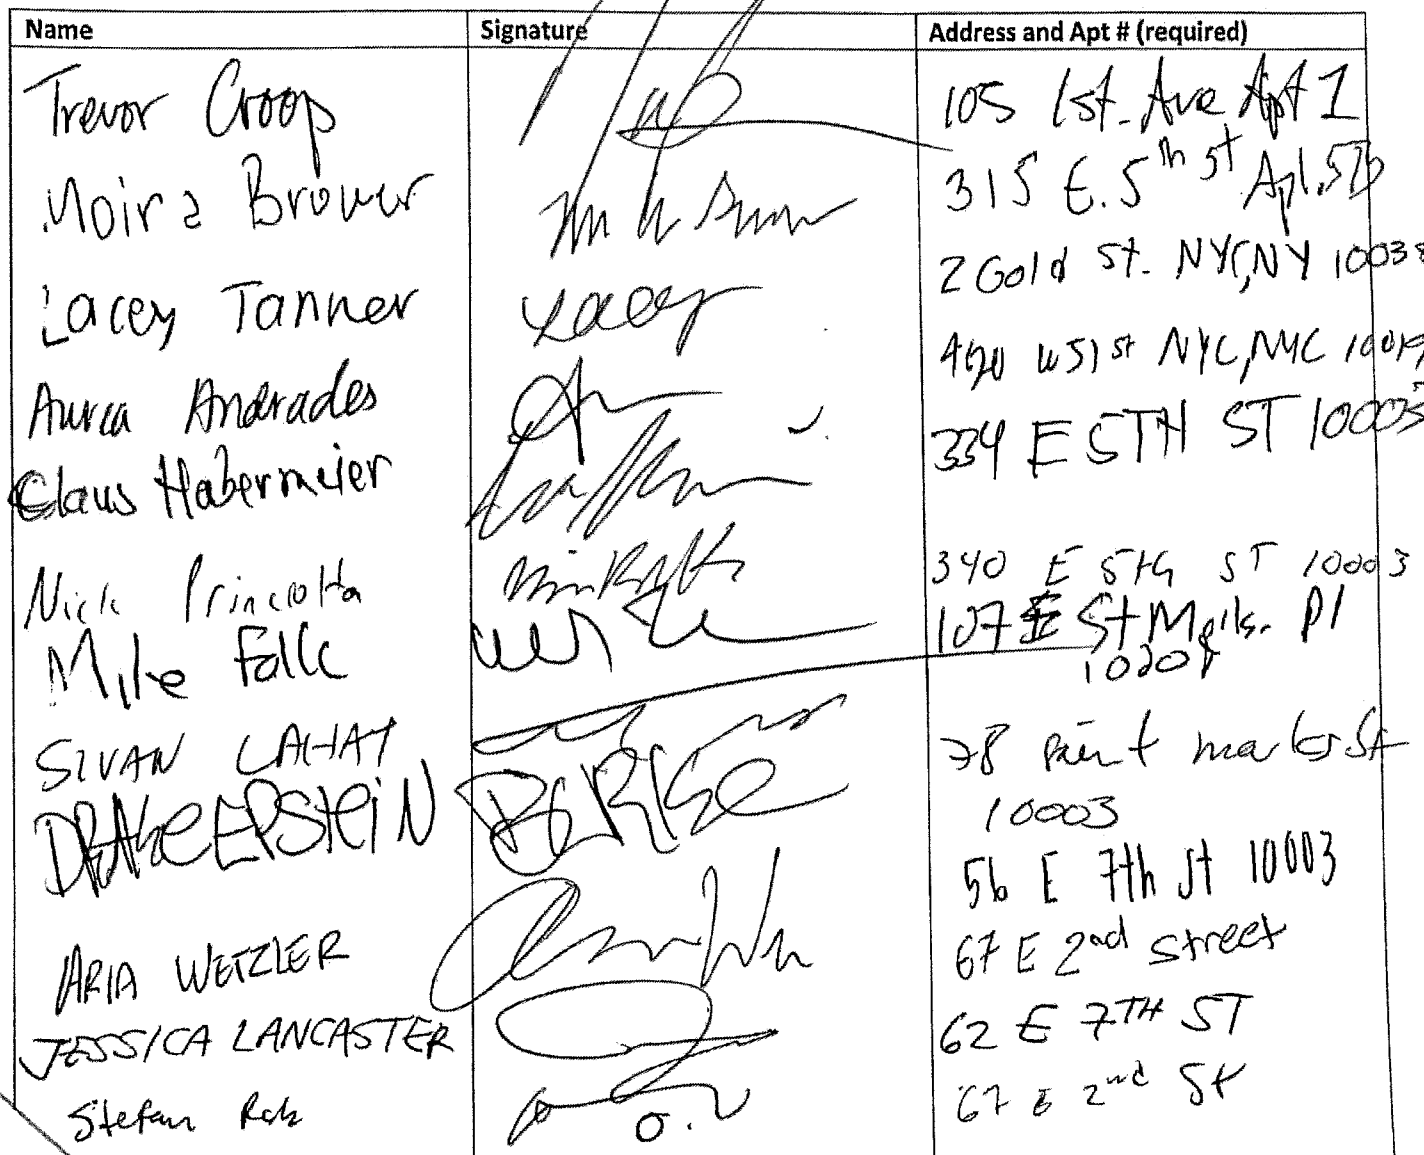 Name Signature Address and Apt # (required)
Trevor Croop 105 1st. Ave Apt 1
Moira Brower 315 E. 5th st Apt. 5B
Lacey Tanner Lacey 2 Gold St. NYC, NY 10038
Aurea Andrades 420 W 51st NYC, NYC 10019
Claus Habermeier 334 E 5TH ST 10003
Nick Princiotta 340 E 5th ST 10003
Mike Falk 107 St Marks Pl
SIVAN LAHAT 78 saint marks St
10003
DRAKE EPSTEIN 56 E 7th St 10003
ARIA WETZLER 67 E 2nd street
JESSICA LANCASTER 62 E 7TH ST
Stefan 67 E 2nd St